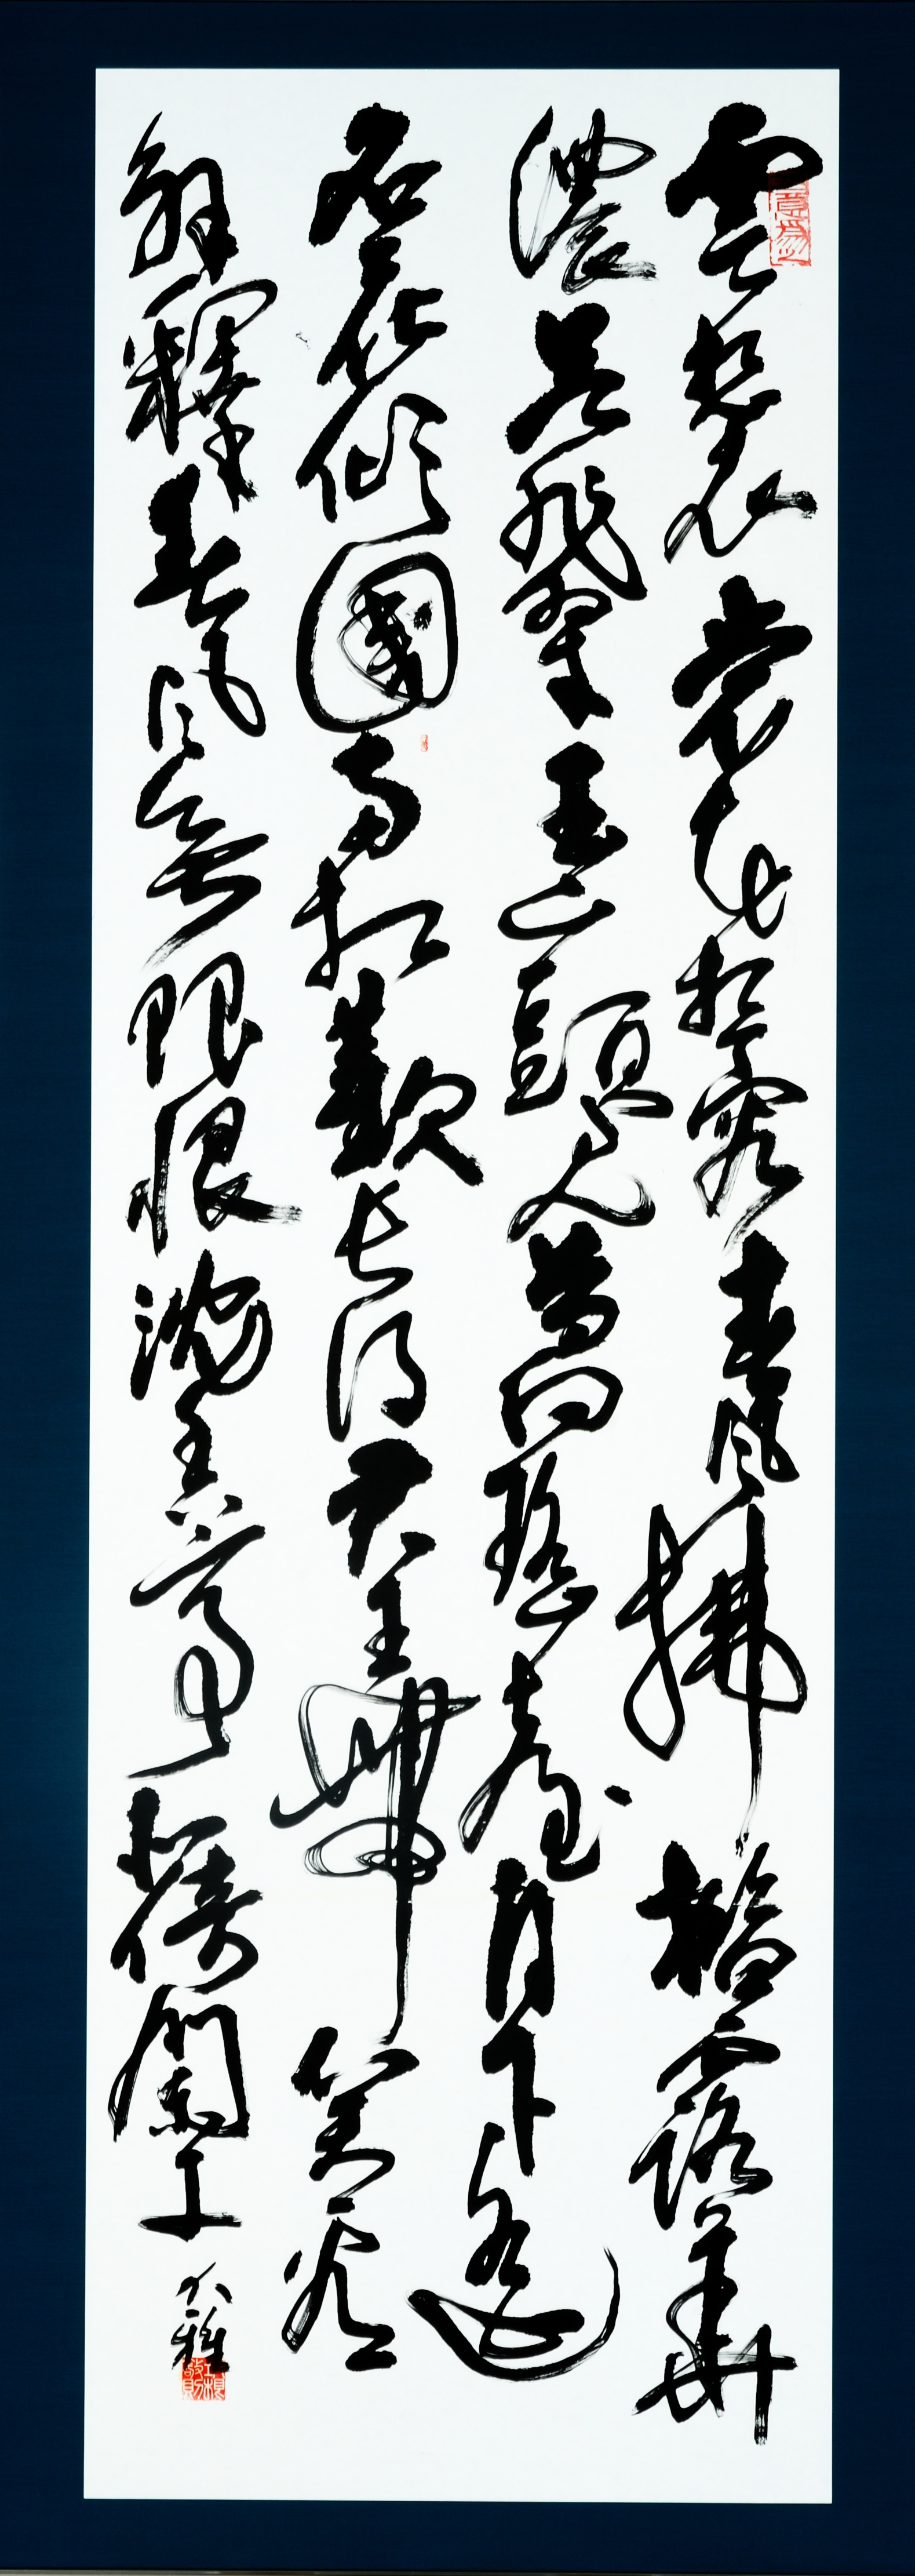 雲想衣裳花想容春風拂檻露華
濃若非羣玉山頭見會向瑤臺月下逢
名花傾國兩相歡長得君王帶笑看
解釋春風無限恨沈香亭北倚闌干